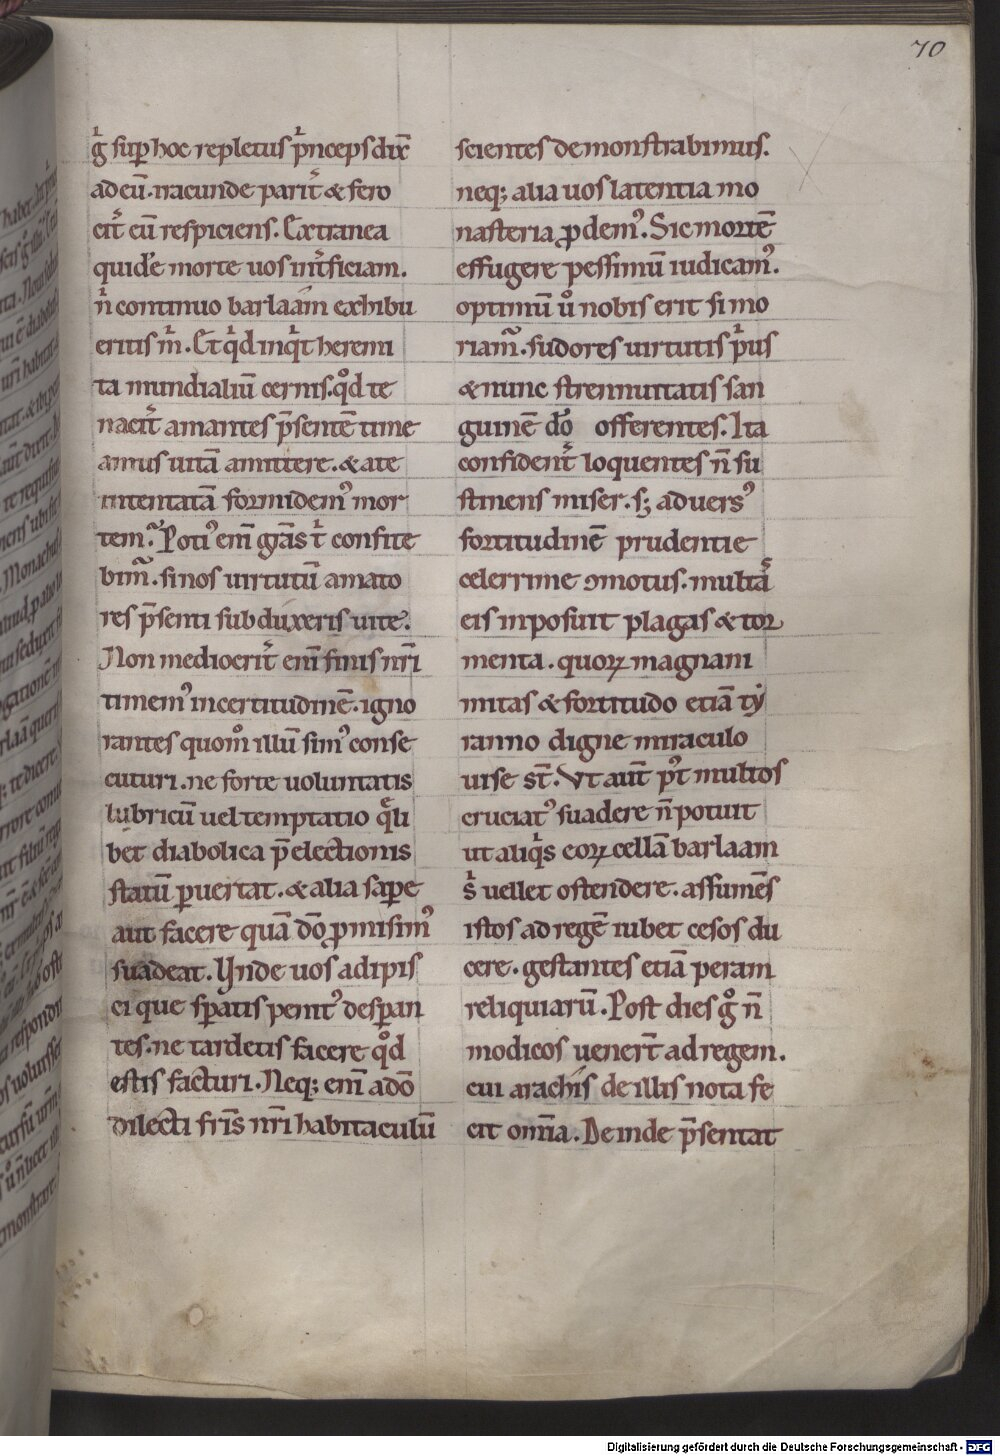 70
gͥ sup̲ hoc repletus pͥnceps dix̄
ad eū. iracunde parit̾ & fero
cit̾ eū respiciens. Extranea
quidē morte uos int̾ficiam.
n̄ continuo barlaam exhibu
eritis mͥ. Et qͥd inqͥt heremi
ta mundialiū cernis. qͦd te
nacit̾ amantes p̄sentē time
amus uitā amittere. & a te
intentatā formidemꝰ mor
tem. Potiꝰ eni̅ grās tͥ confite
bim̾. si nos uirtutū amato
res p̄senti subduxeris uite.
Non mediocrit̾ eni̅ finis nr̄i
timemꝰ incertitudinē. igno
rantes quomͦ illū simꝰ conse
cuturi. ne forte uoluntatis
lubricū uel temptatio qͣli
bet diabolica p̄electionis
statū ꝑuertat. & alia sapere
aut facere quā dō ꝓmisimꝰ
suadeat. Unde uos adipis
ci que sꝑatis penitꝰ desꝑan
tes. ne tardetis facere qͦd
estis facturi. Neq; eni̅ a dō
dilecti fr̄is nr̄i habitaculū
scientes demonstrabimus.
neq; alia uos latentia mo
nasteria ꝓdemꝰ. Sic mortē
effugere pessimū iudicamꝰ.
optimū uͦ nobis erit si mo
riam̾. sudores uirtutis pͥus
& nunc strennuitatis san
guinē dō offerentes. Ita
confident̾ loquentes n̄ su
stinens miser. s; aduersꝰ
fortitudinē prudentie
celerrime ꝯmotus. multā
eis inposuit plagas & tor
menta. quoꝝ magnani
mitas & fortitudo etiā ty
ranno digne miraculo
uise st̄. Vt aut̄ p̄t multos
cruciatꝰ suadere n̄ potuit
ut aliqͥs eoꝝ cellā barlaam
sͥ uellet ostendere. assumēs
istos ad regē iubet cesos du
cere. gestantes etiā peram
reliquiarū. Post dies gͦ n̄
modicos uener̄t ad regem.
cui arachis de illis nota fe
cit om̄ia. Deinde p̄sentat
Digitalisierung gefördert durch die Deutsche Forschungsgemeinschaft - DFG